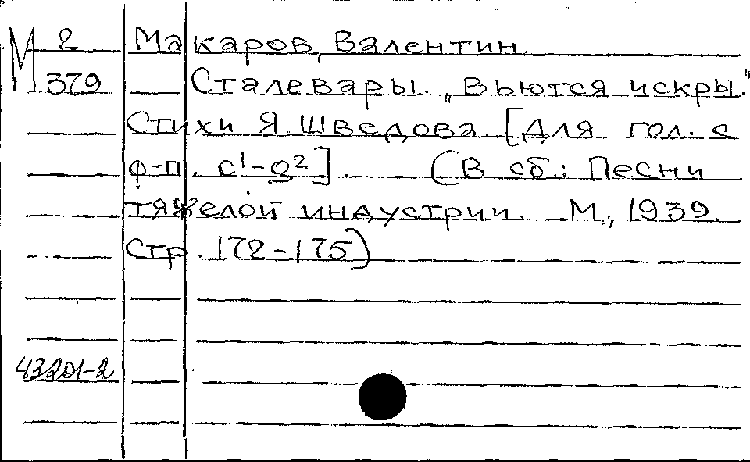 М 2 Макаров, Валентин
379 Сталевары. „Вьются искры."
Стихи Я. Шведова. [Для гол. с
ф-п. c¹-g²]. (В сб.: Песни
тяжелой индустрии. М., 1939.
Стр. 172-175)
43201-2